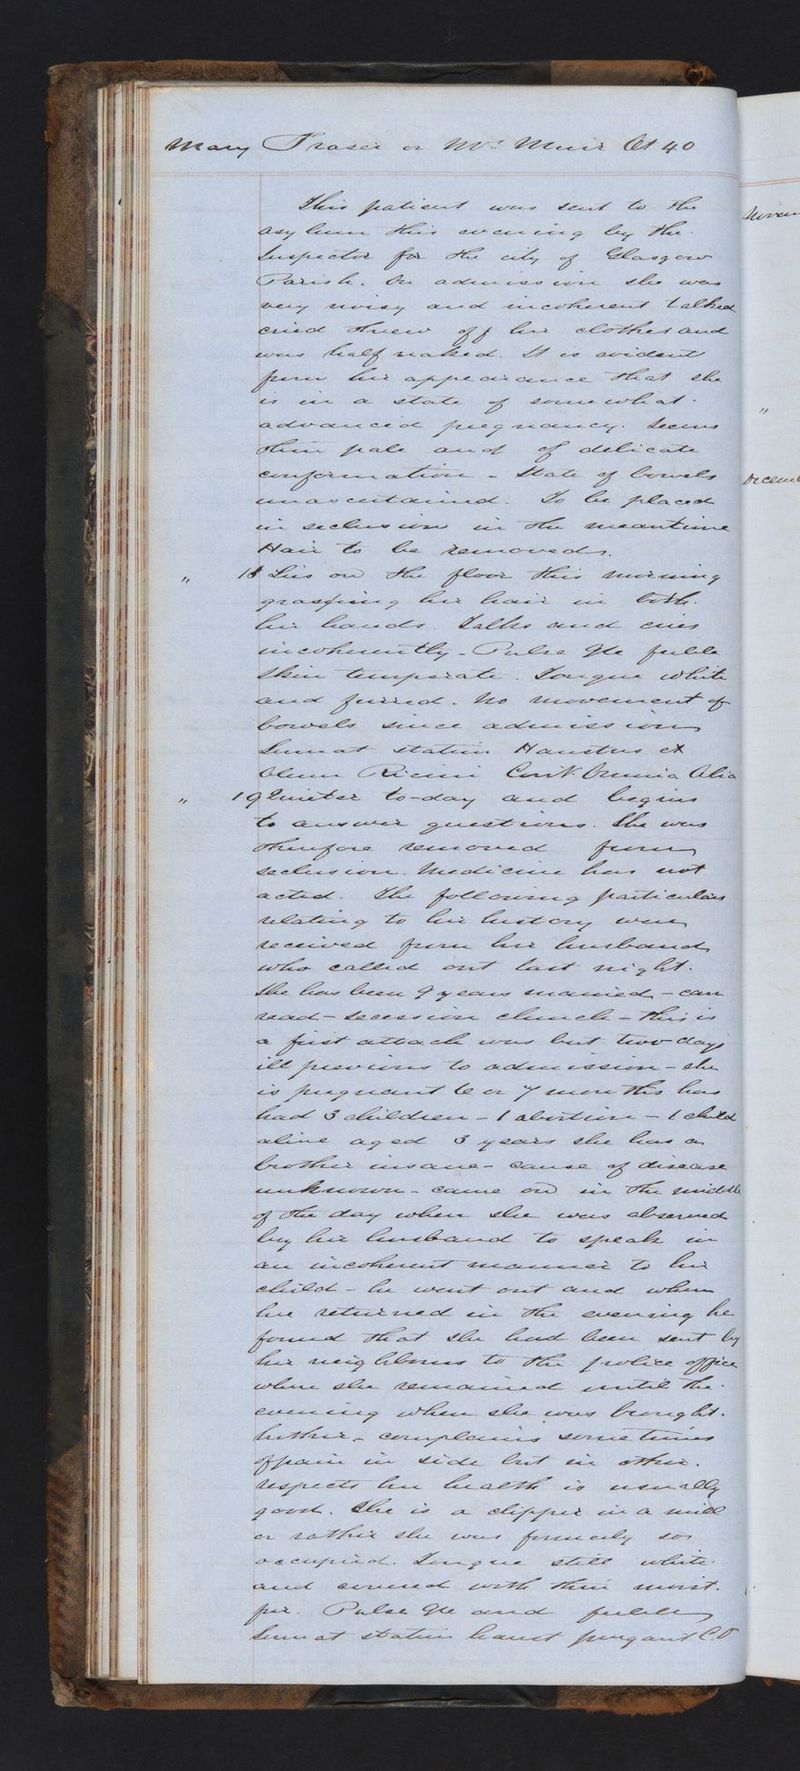 Mary Fraser or Mrs Muir Aet 40
This patient was sent to the
asylum this evening by the
Inspector for the city of Glasgow
Parish. On admission she was
very noisy and incoherent talked
cried threw off her clothes and
was half naked. It is evident
from her appearance that she
is in a state of somewhat
advanced pregnancy. Seems
thin pale and of delicate
conformation - State of bowels
unascertained. To be placed
in seclusion in the meantime
Hair to be removed.
" 18 Lies on the floor this morning
grasping her hair in both
her hands. Talks and cries
incoherently - Pulse feeble
skin temperate. Tongue white
and furred. No movement of
bowels since admission
Sumat statim Haustus ex
Oleum Ricini Cont Omnia Alia
" 19 Quieter to-day and begins
to answer questions. She was
therefore removed from
seclusion. Medicine has not
acted. The following particulars
relating to her history were
received from her husband
who called out last night.
She has been 9 years married - can
read - secession church - this is
a first attack was but two days
ill previous to admission - she
is pregnant 6 or 7 months has
had 3 children - 1 abortion - 1 child
alive aged 3 years she has a
brother insane - cause of disease
unknown - came on in the middle
of the day when she was observed
by her husband to speak in
an incoherent manner to her
child - he went out and when
he returned in the evening he
found that she had been sent by
her neighbours to the police office
where she remained until the
evening when she was brought
hither - complains sometimes
of pain in side but in other
respects her health is usually
good. She is a clipper in a mill
or rather she was formerly so
occupied. Tongue still white
and covered with thin moist
fur. Pulse and feeble
Sumat statim haust purgant C.O
Decem